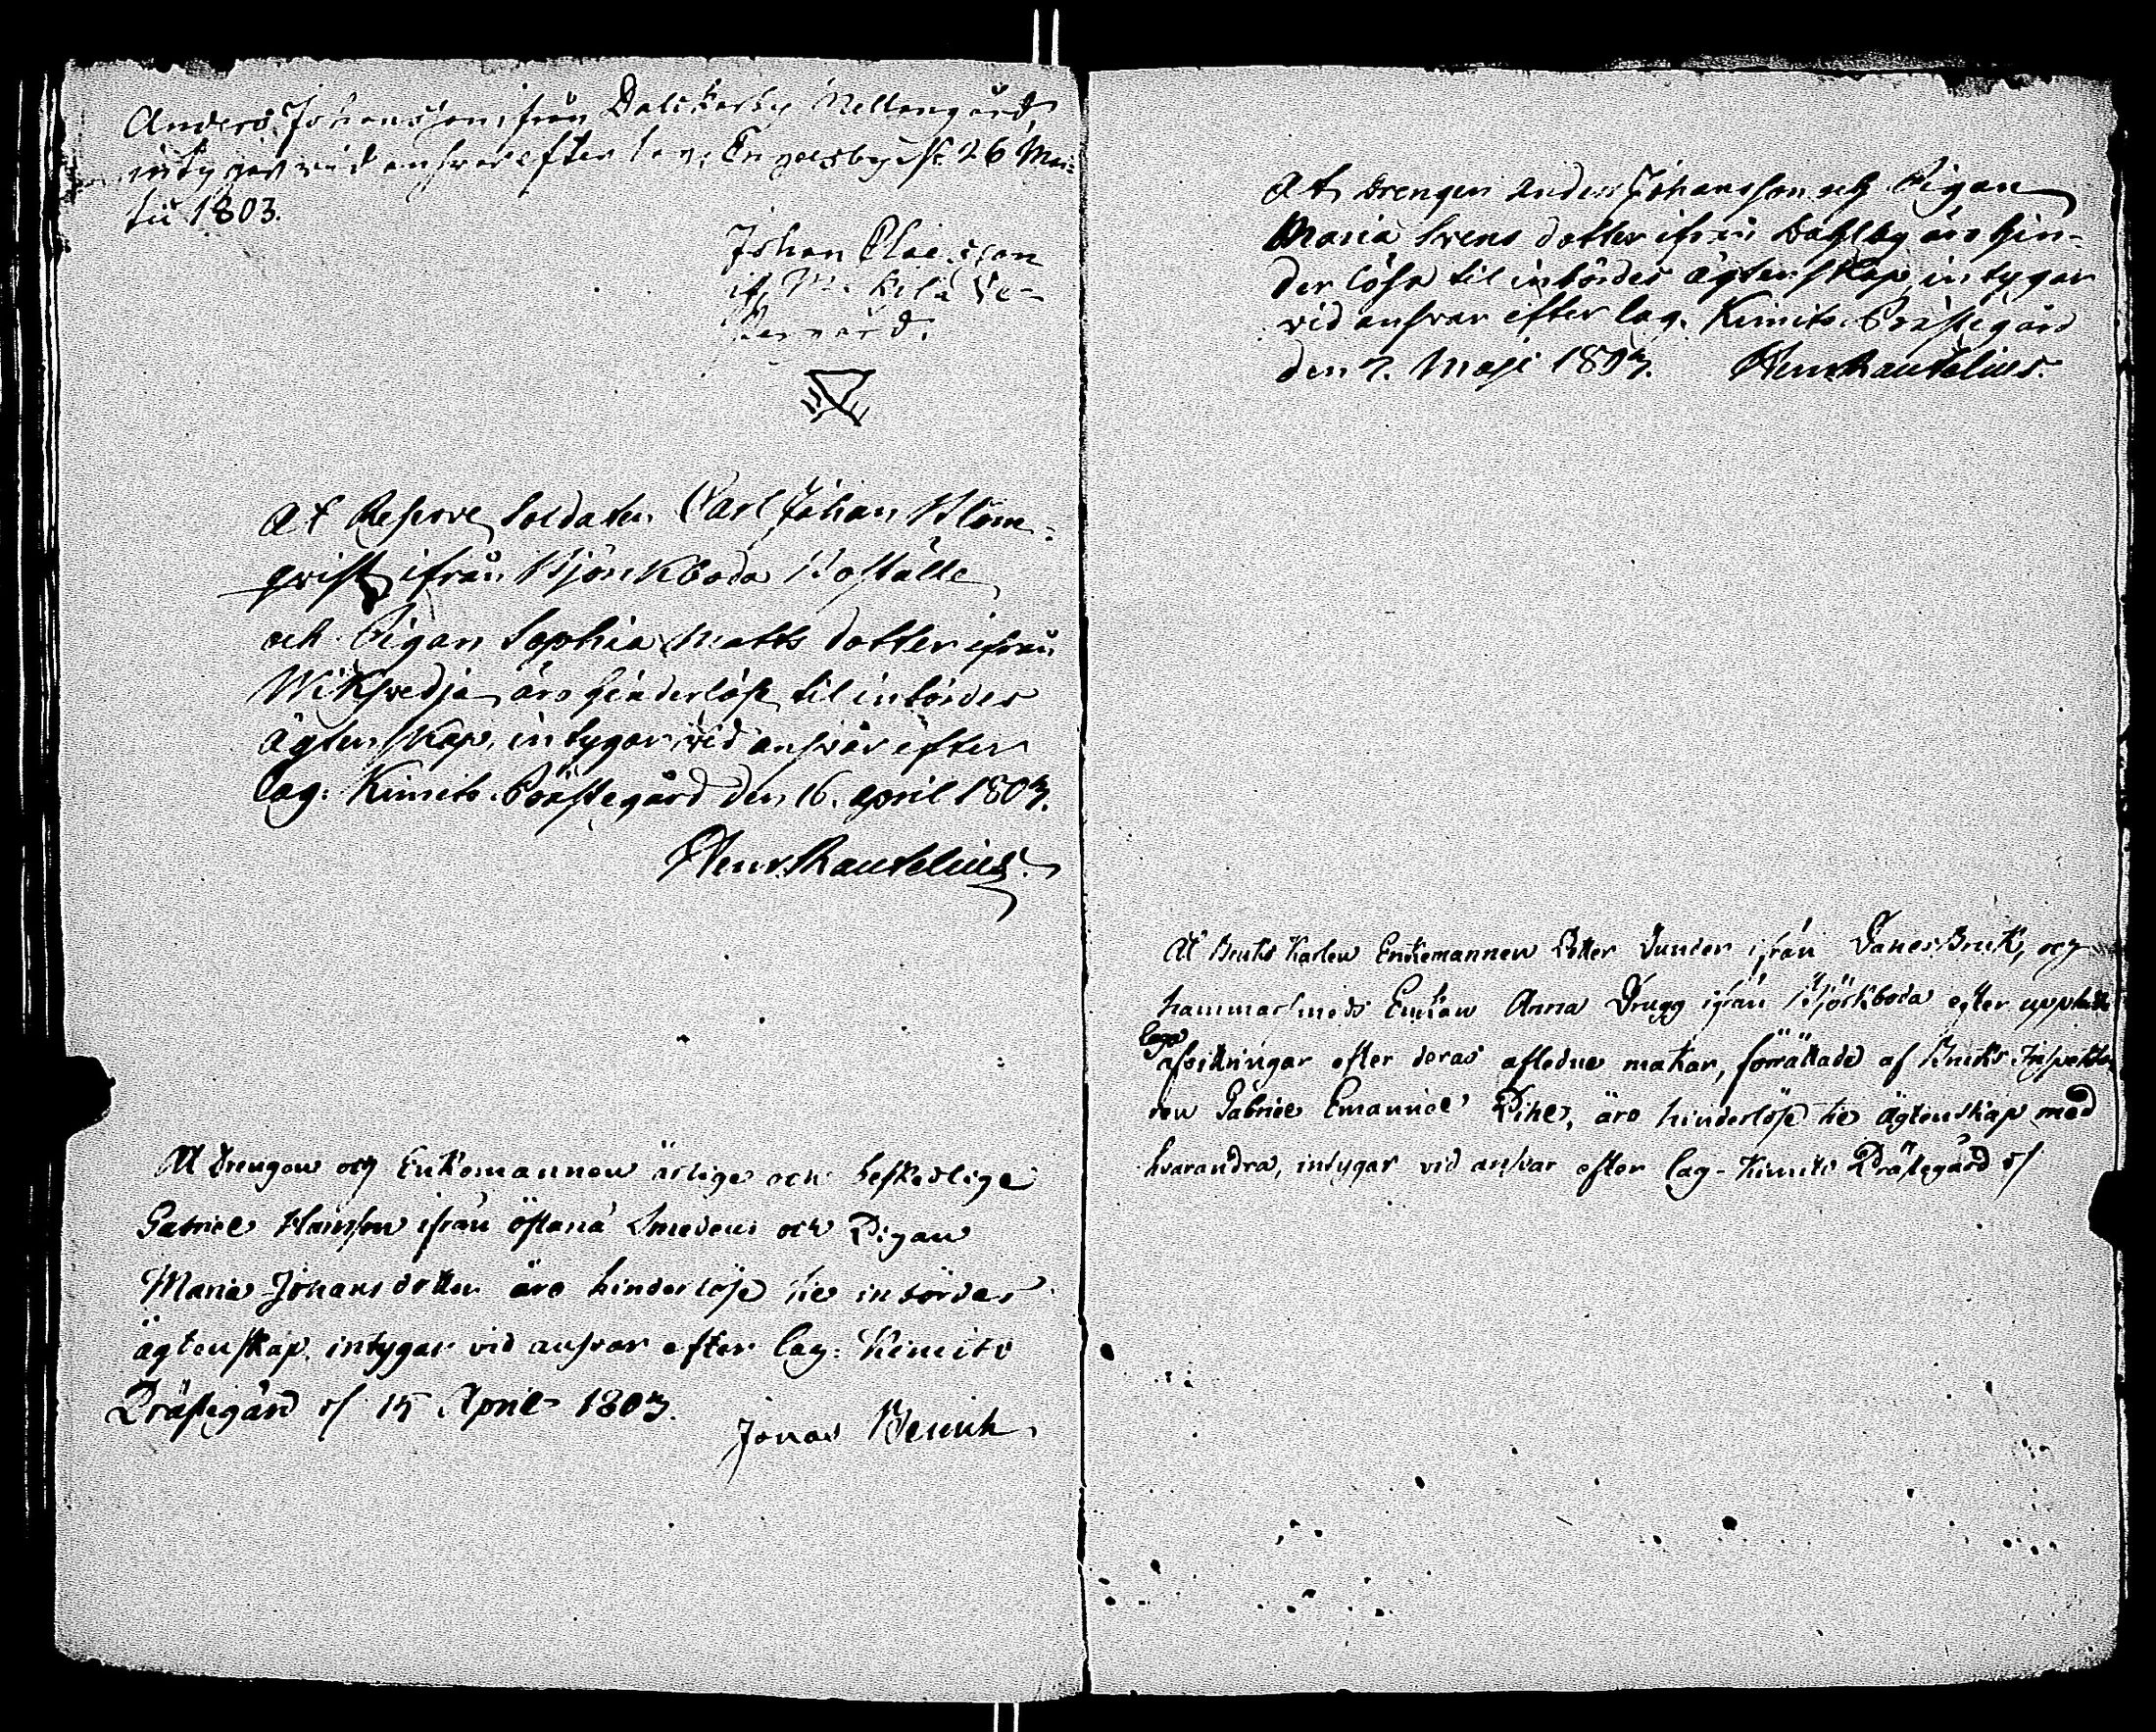 Anders Johansson, från Dalskarby Mellangård,
intygar vid answar efter lag, Engelsby d. 26 Mar-
tii 1803.
Johan Claesson
Att Reserve Soldaten Carl Johan Blom-
qvist ifrån Björkboda Boställe
och Pigan Sophia Matts dotter ifrån
Wikswedja äro hinderlöse til inbördes
ägtenskap, intygar vid answar efter
lag. Kimito Prästegård den 16. april 1803.
Henr. Rautelius.
At Drengen och Enkemannen ärlige och beskedlige
Gabriel Hansson ifrån Östanå Smedens och Pigan
Maria Johans dotter äro hinderlöse til inbördes
ägtenskap, intygar vid answar efter lag: Kimito
Prästegård d. 15 April 1803.
Jonas
At Drengen Anders Johansson och Pigan
Maria Svens dotter ifrån Dahlby äro hin-
derlöse til inbördes ägtenskap, intygar
vid answar efter lag. Kimito Prästegård
den 7. Maji 1803. Henr. Rautelius.
At Bruks Karlen Enkemannen Petter Sunder ifrån Bruk, och
hammarsmeds Enkan Anna Drugg ifrån Björkboda efter
laga
afvittringar efter deras aflidne makar, förrättade af Bruks Inspekto-
ren Gabriel Emanuel Pihl, äro hinderlöse til ägtenskap med
hvarandra, intygar vid answar efter lag - Kimito Prästegård d.